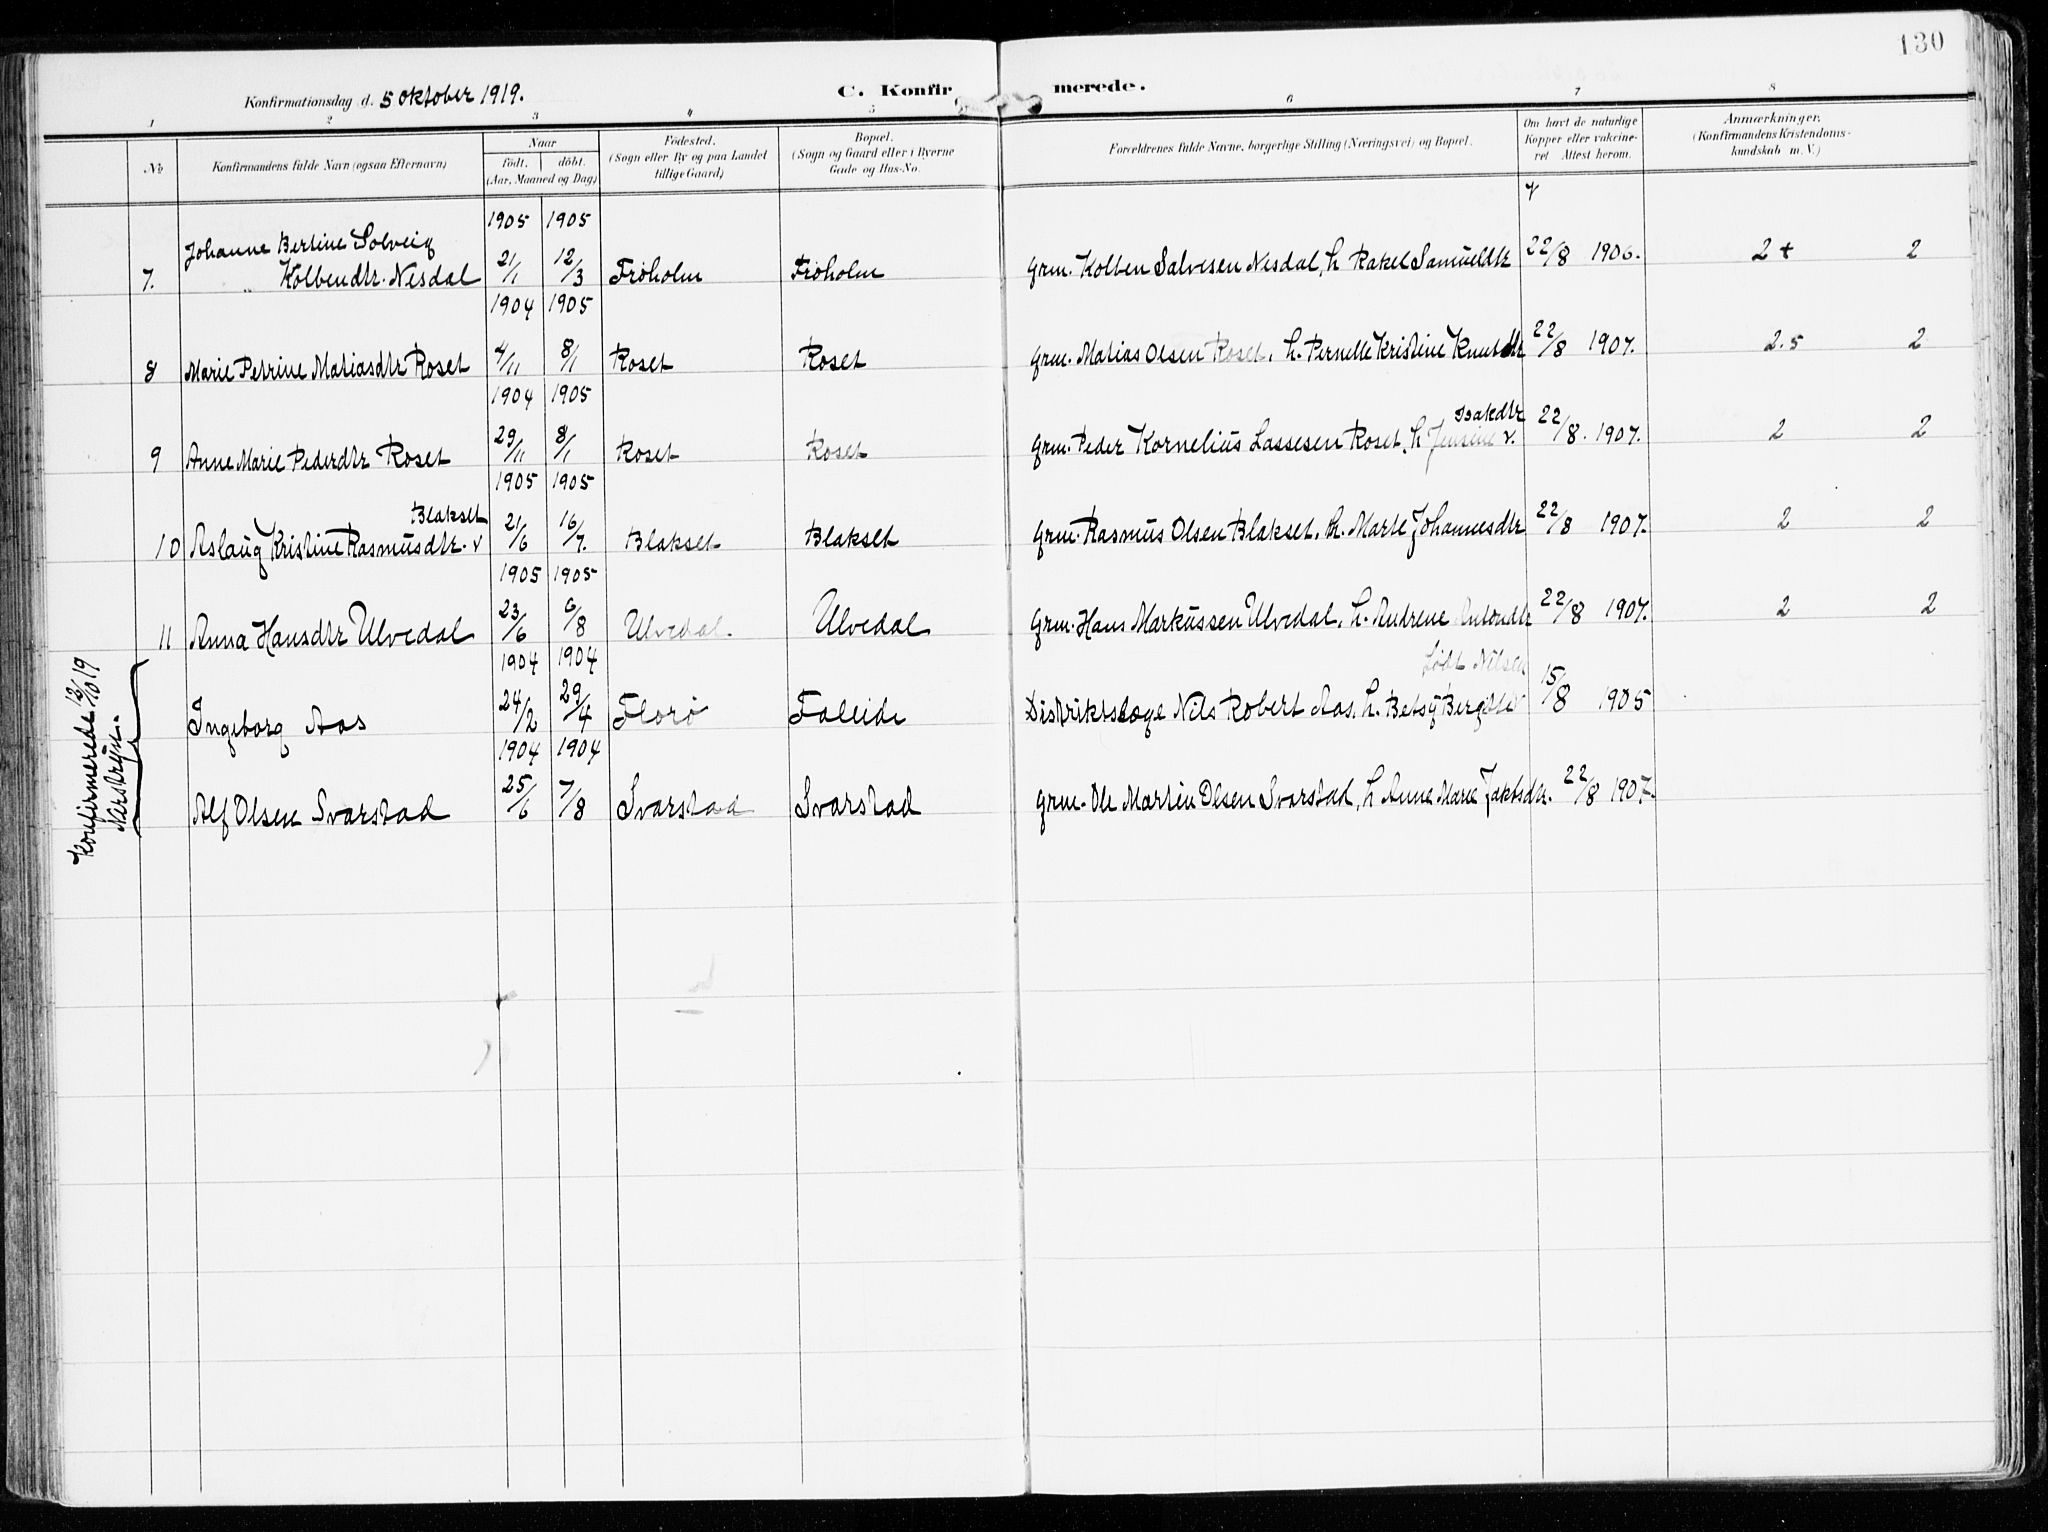 130
Konfirmationsdag d. 5 oktober 1919.
C. Konfir merede.
1 2 3 4 5 6 7 8
No
Konfirmandens fulde Navn (ogsaa Efternavn)
Naar
födt. döbt.
(Aar, Maaned og Dag)
Födested.
(Sogn eller By og paa Landet
tillige Gaard)
Bopæl.
(Sogn og Gaard eller i Byerne
Gade og Hus-No.
Forældrenes fulde Navne, borgerlige Stilling (Næringsvei) og Bopæl.
Om havt de naturlige
Kopper eller vakcine-
ret Attest herom.
Anmærkninger.
(Konfirmandens Kristendoms-
kundskab m. V.)
1905 1905
Johanne Bertine Solveig
7. Kolbendtr. Nesdal 21/1 12/3 Frøholm Frøholm Grm. Kolben Salvesen Nesdal, h Rakel Samueldtr 22/8 1906. 2+ 2
1904 1905
8 Marie Petrine Matiasdtr Roset 4/11 8/1 Roset Roset Grm. Matias Olsen Roset, h. Pernelle Kristine Knutdtr 22/8 1907. 2.5 2
1904 1905
Isakdtr
9 Anne Marie Pederdtr Roset 29/11 8/1 Roset Roset Grm. Peder Kornelius Lassesen Roset, h Jensine v. 22/8. 1907. 2 2
1905 1905
Blakset
10 Aslaug Kristine Rasmusdtr. v 21/6 16/7. Blakset Blakset Grm. Rasmus Olsen Blakset, h. Marte Johannesdtr 22/8 1907. 2 2
1905 1905
11 Anna Hansdtr Ulvedal 23/6 6/8 Ulvedal. Ulvedal Grm. Hans Markussen Ulvedal, h. Andrene Antondtr 22/8 1907. 2 2
1904 1904
født Nilsen
Konfirmerede 12/10 19
Nærstryn.
Ingeborg Aas 24/2 29/4 Florø Faleide Distriktslæge Nils Robert Aas, h. Betsy Bergitte v 15/8 1905
1904 1904
Alf Olsen Svarstad 25/6 7/8 Svarstad Svarstad Grm. Ole Martin Olsen Svarstad, h Anne Marie Jakobdtr. 22/8 1907.